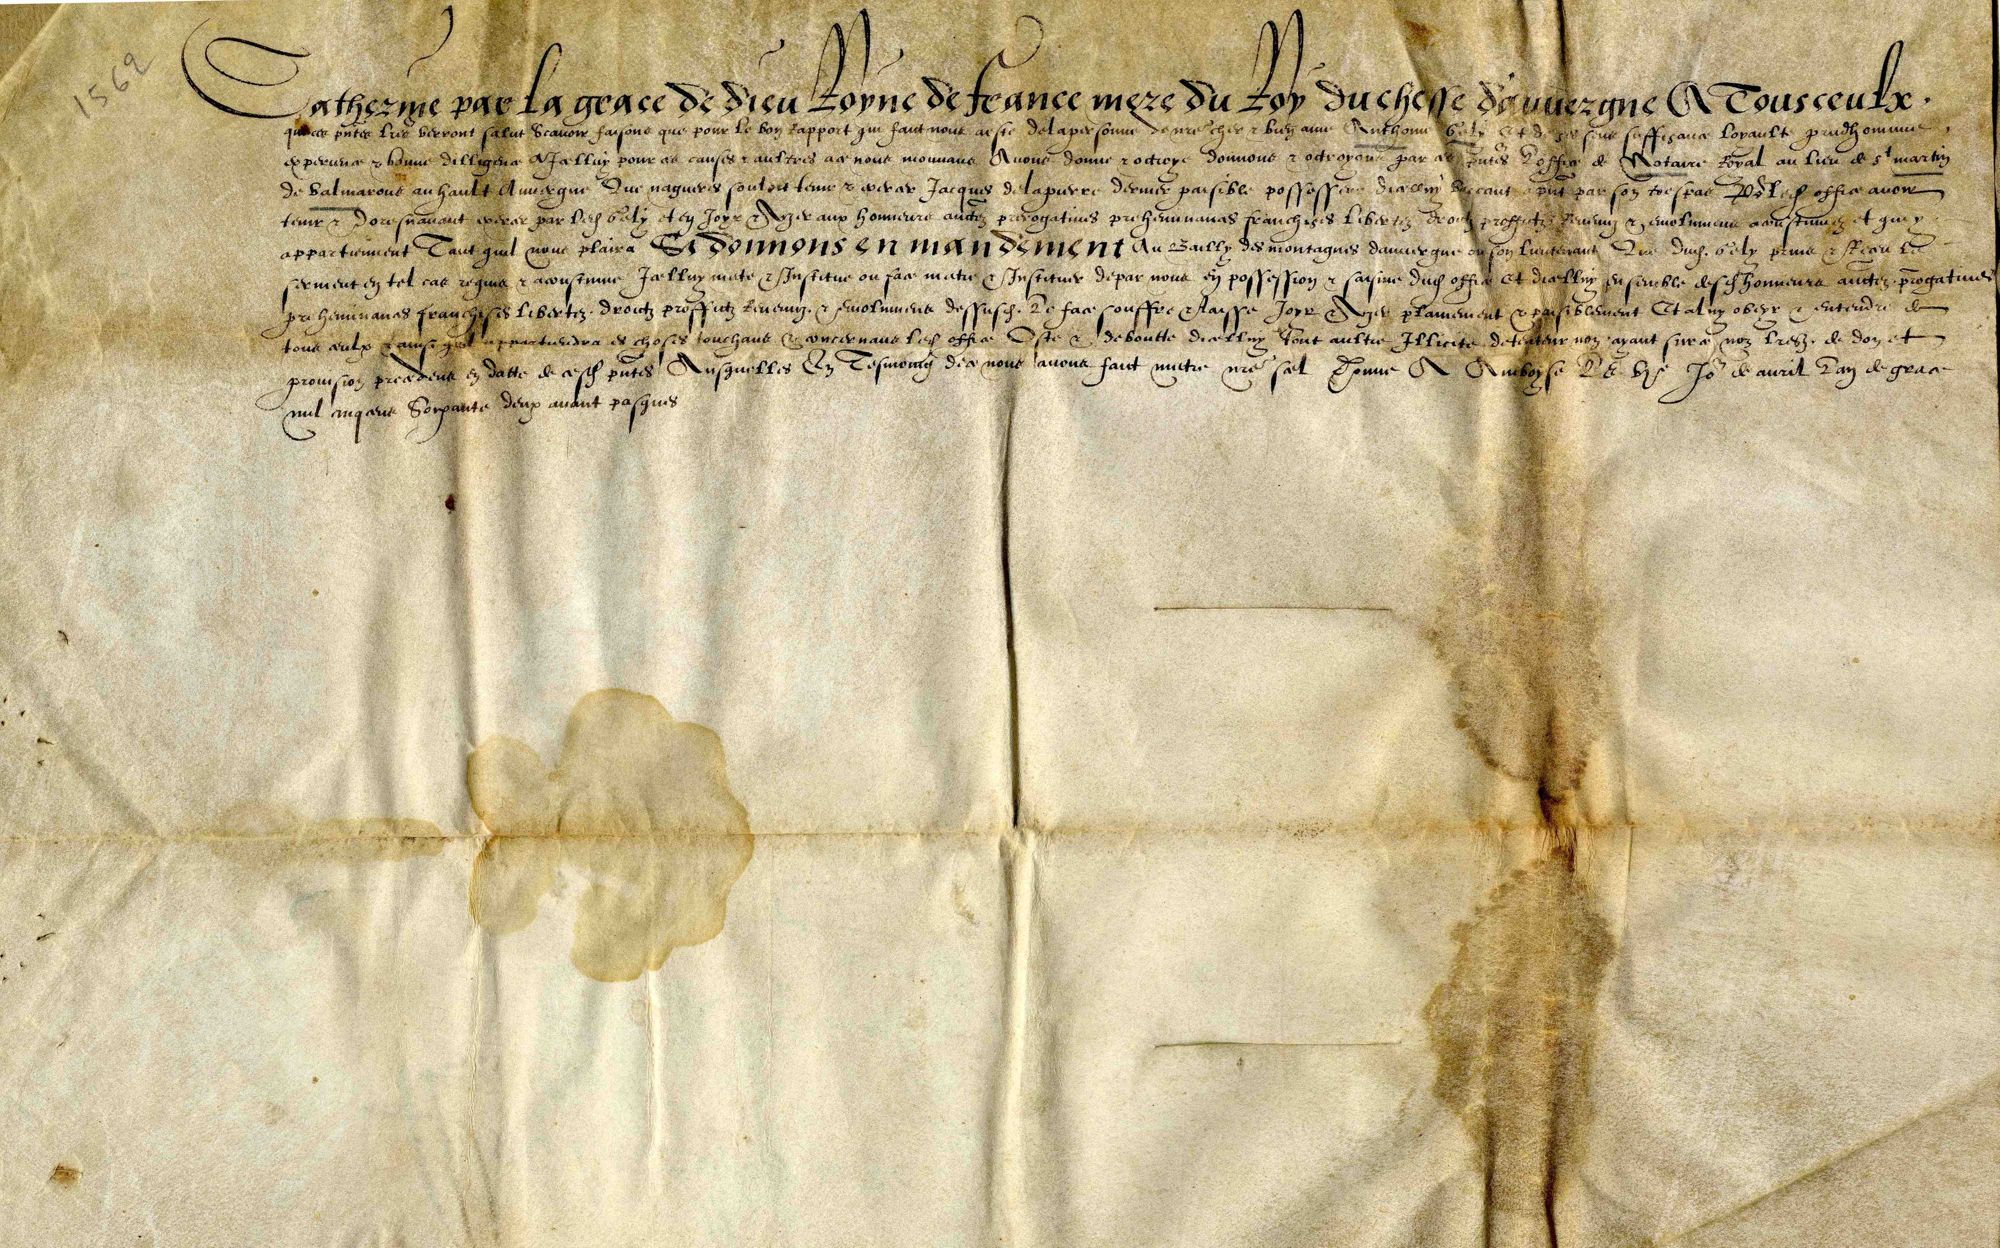 1562
Catherine par la grace de dieu Royne de france mere du Roy duchesse dauvergne A Tous ceulx
que ces pntes lres verront salut Scavoir faisons que pour le bon rapport qui faict nous a este de la personne de nre cher & bien ame Anthoine Gely et de ses sens suffisance loyaulte preudhommie
experience & bonne dilligence A Icelluy pour ces causes & aultres a ce nous mouvans Avons donne & octroye donnons & octroyons par ces pntes Loffice de Notaire Royal au lieu de st martin
de valmarons au hault Auvergne Que nagueres souloit tenir & exercer Jacques delapierre dernier paisible possesseur dicelluy vaccant a pnt par son trespas Pour led office avoir
tenir & doresnavant exercer par led Gely et en Joyr & user aux honneurs auctez prerogatives preheminances franchises libertez droictz proffictz Revenuz & emolumens acoustumez et qui y
appartiennent Tant quil nous plaira Si donnons en mandement Au Bailly des montagnes dauvergne ou son lieutenant Que dud. Gely prins & Receu le
serment en tel cas requis & acoustume Icelluy mete & Institue ou face metre & Instituer de par nous en possession & saisine dud office Et dicelluy ensemble desd honneurs auctez. prerogatives
preheminances franchises libertez. droictz proffictz Revenuz. & emolumens dessusd. Le face souffre & laisse Joyr & user plainement & paisiblement Et a luy obeyr & entendre de
tous ceulx & ainsi quil appartiendra es choses touchans & concernans led office Oste & deboutte dicelluy tout aultre Illicite detenteur non ayant sur ce noz lrez. de don et
provision precedens en datte de cesd pntes Ausquelles En Tesmoing de ce nous avons faict mectre nre scel Donne A Amboyse Le Jor de avril Lan de grace
mil cinq cens Soixante deux avant pasques